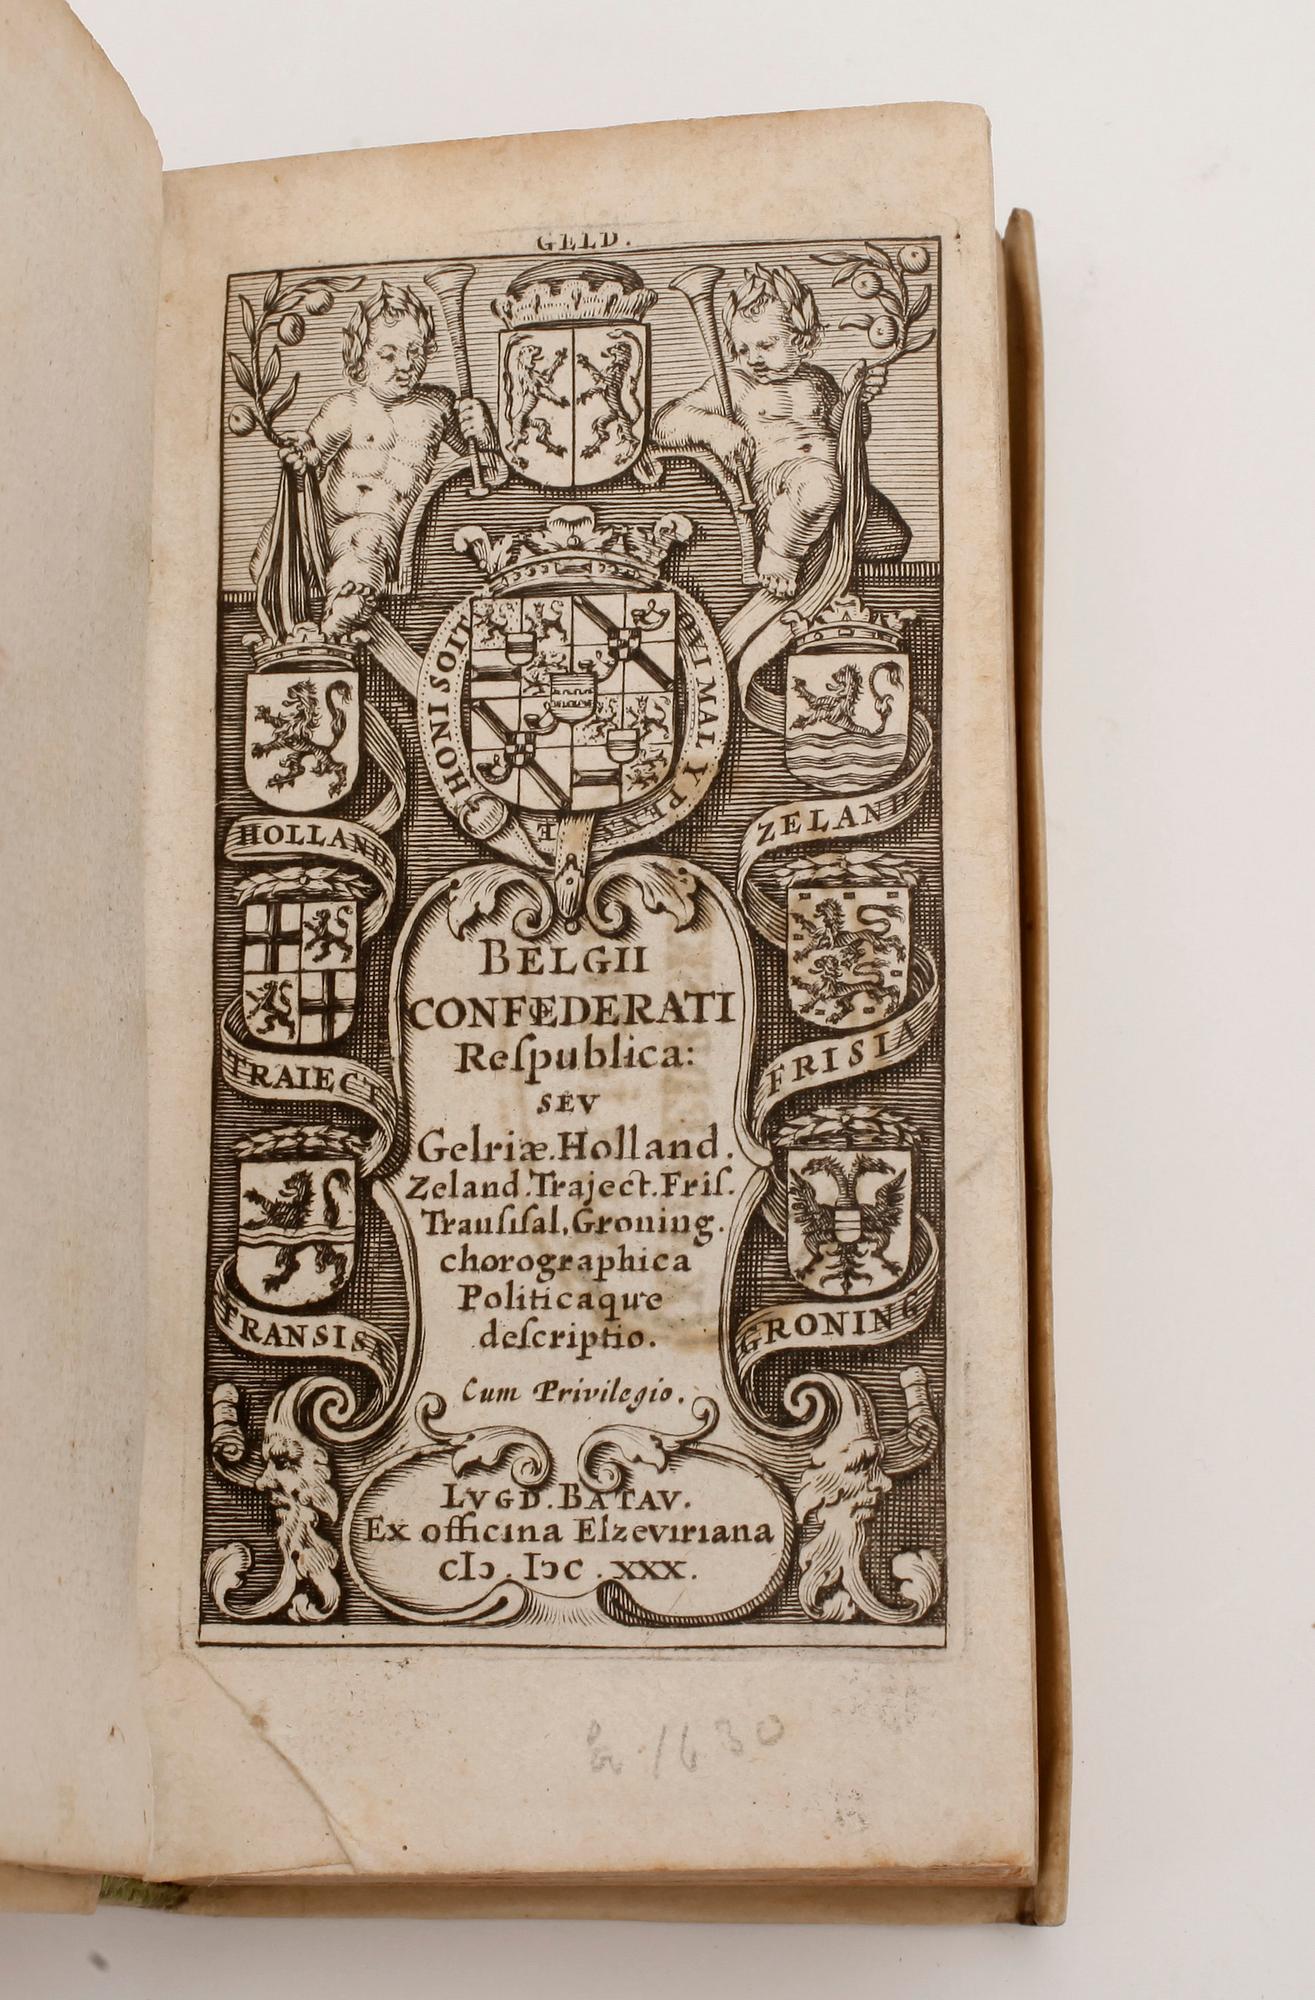 GELD.
HONI SOIT QVI MAL Y PENSE
HOLLAND
ZELAND
TRAIECT
FRISIA
TRANSISA
GRONING
BELGII
CONFŒDERATI
Reſpublica:
SEV
Gelriæ.Holland.
Zeland.Traject.Friſ.
Tranſiſal.Groning.
chorographica
Politicaque
deſcriptio.
Cum Privilegio.
LVGD.BATAV.
Ex officina Elzeviriana
cIɔ.Iɔc.xxx.
1630